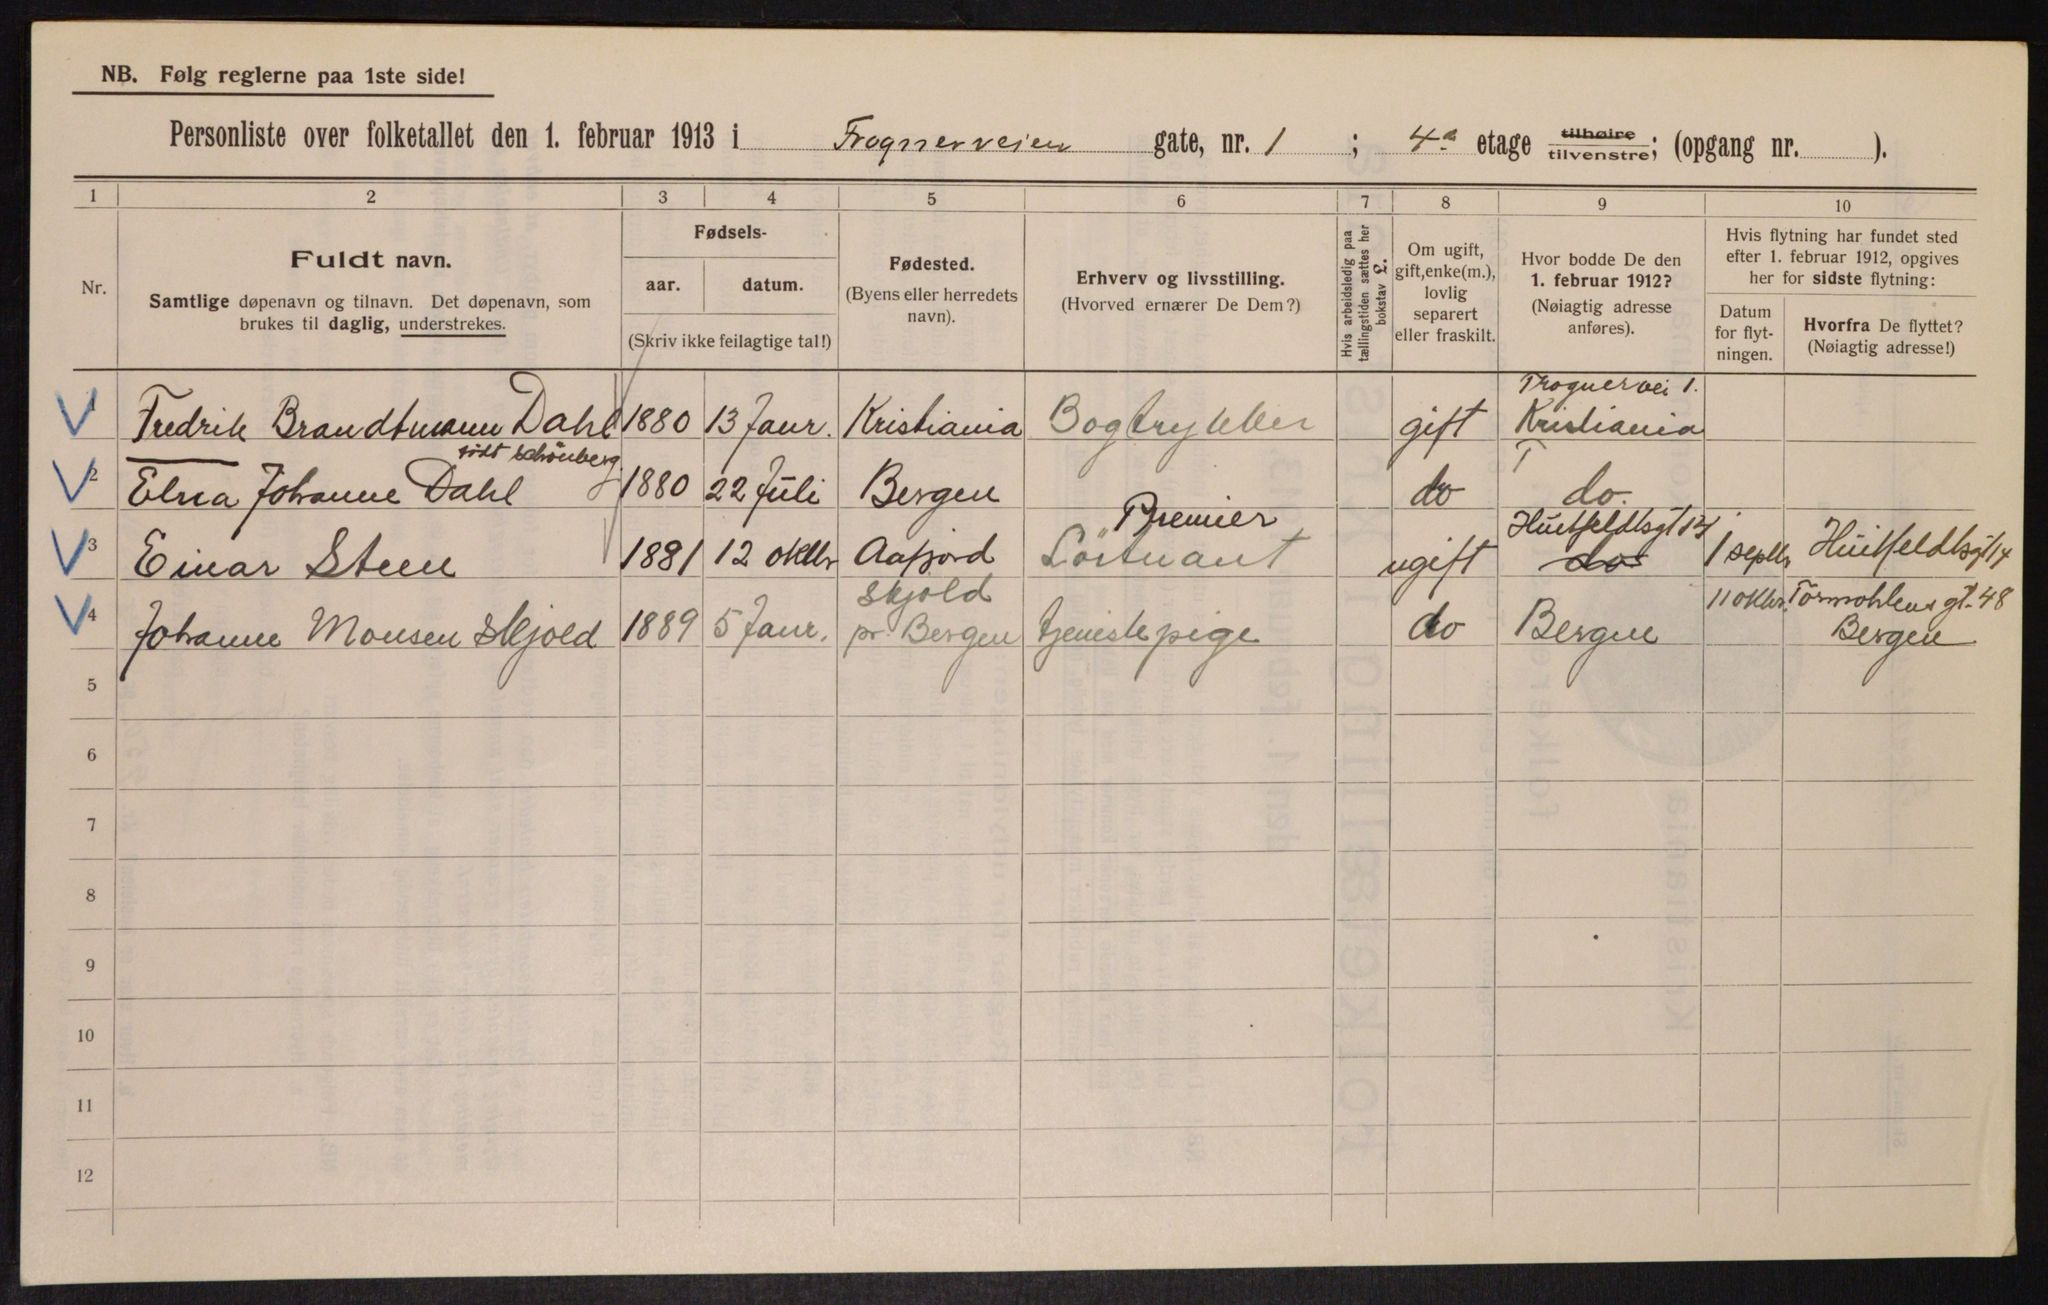 NB. Følg reglerne paa 1ste side!
Personliste over folketallet den 1. februar 1913 i Frognerveien gate, nr. 1 ; 4de etage tilhøire tilvenstre; (opgang nr. ).
1 2 3 4 5 6 7 8 9 10
Nr.
Fuldt navn.
Samtlige døpenavn og tilnavn. Det døpenavn, som
brukes til daglig, understrekes.
Fødsels-
aar. datum.
(Skriv ikke feilagtige tal!)
Fødested.
(Byens eller herredets
navn).
Erhverv og livsstilling.
(Hvorved ernærer De Dem?)
Hvis arbeidsledig paa
tællingstiden sættes her
bokstav L.
Om ugift,
gift, enke(m.),
lovlig
separert
eller fraskilt.
Hvor bodde De den
1. februar 1912?
(Nøiagtig adresse
anføres).
Hvis flytning har fundet sted
efter 1. februar 1912, opgives
her for sidste flytning:
Datum
for flyt-
ningen.
Hvorfra De flyttet?
(Nøiagtig adresse!)
Frognervei 1.
1 Fredrik Brandtmann Dahl 1880 13 Janr. Kristiania Bogtrykker gift Kristiania
født Schönberg
2 Elna Johanne Dahl 1880 22 Juli Bergen do do.
Premier Huitfeldtsgt 14
3 Einar Steen 1881 12 oktbr Aafjord Löitnant ugift do 1 septbr Huitfeldtsgt 14
Skjold 11 oktbr. Törmohlens gt. 48
4 Johanne Monsen Skjold 1889 5 Janr. pr. Bergen tjenestepige do Bergen Bergen
5
6
7
8
9
10
11
12